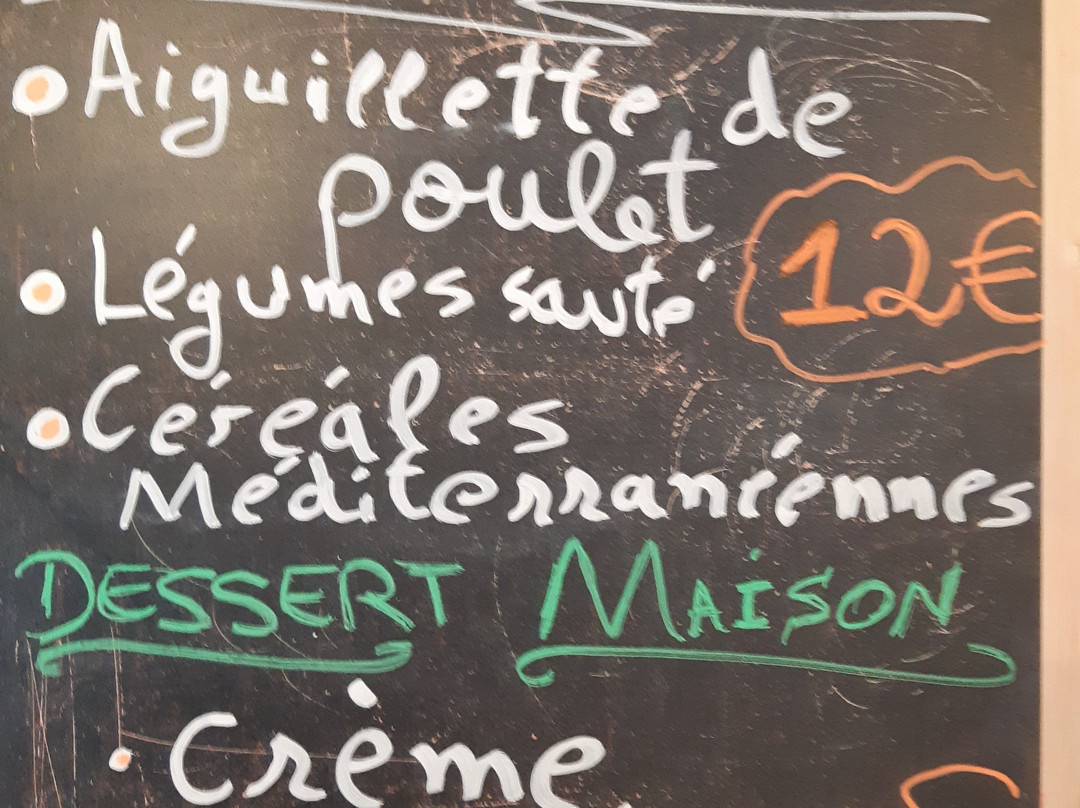 Aiguillette de
poulet
12€
Légumes sauté
Céréales
Méditerranéennes
DESSERT MAISON
Crème